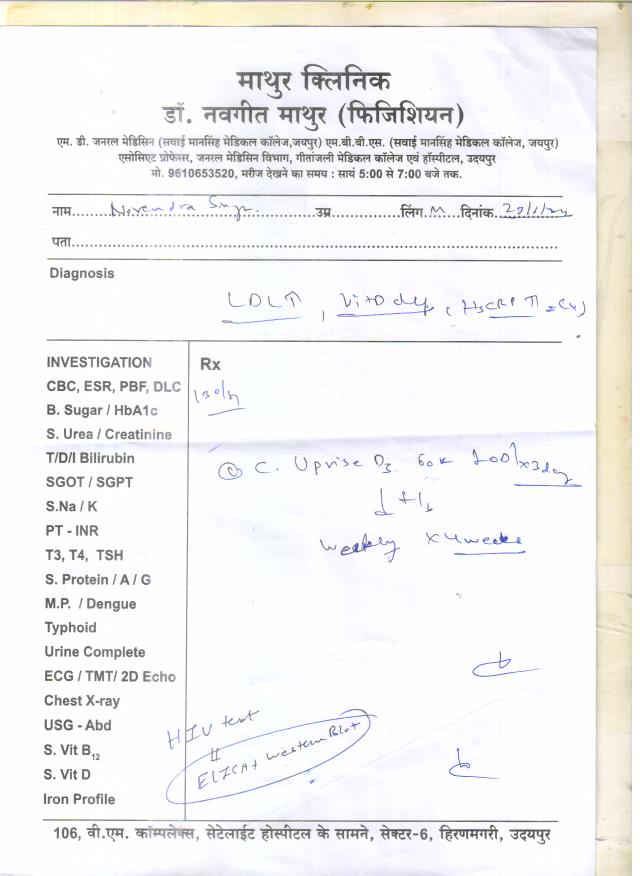 माथुर क्लिनिक
डॉ. नवगीत माथुर (फिजिशियन)
एम. डी. जनरल मेडिसिन (सवाई मानसिंह मेडिकल कॉलेज,जयपुर) एम.बी.बी.एस. (सवाई मानसिंह मेडिकल कॉलेज, जयपुर)
एसोसिएट प्रोफेसर, जनरल मेडिसिन विभाग, गीतांजली मेडिकल कॉलेज एवं हॉस्पीटल, उदयपुर
मो. 9610653520, मरीज देखने का समय : सायं 5:00 से 7:00 बजे तक.
नाम Narendra Singh उम्र लिंग M दिनांक
पता
Diagnosis
LDL↑, Vit D def
INVESTIGATION Rx
CBC, ESR, PBF, DLC
B. Sugar / HbA1c
S. Urea / Creatinine
T/D/I Bilirubin C. Uprise D3 60K x3day
SGOT / SGPT
S.Na / K
PT - INR weekly x 4 weeks
T3, T4, TSH
S. Protein / A / G
M.P. / Dengue
Typhoid
Urine Complete
ECG / TMT/ 2D Echo
Chest X-ray
USG - Abd HIV test
S. Vit B12 ELISA + Western Blot
S. Vit D
Iron Profile
106, वी.एम. कॉम्पलेक्स, सेटेलाईट होस्पीटल के सामने, सेक्टर-6, हिरणमगरी, उदयपुर